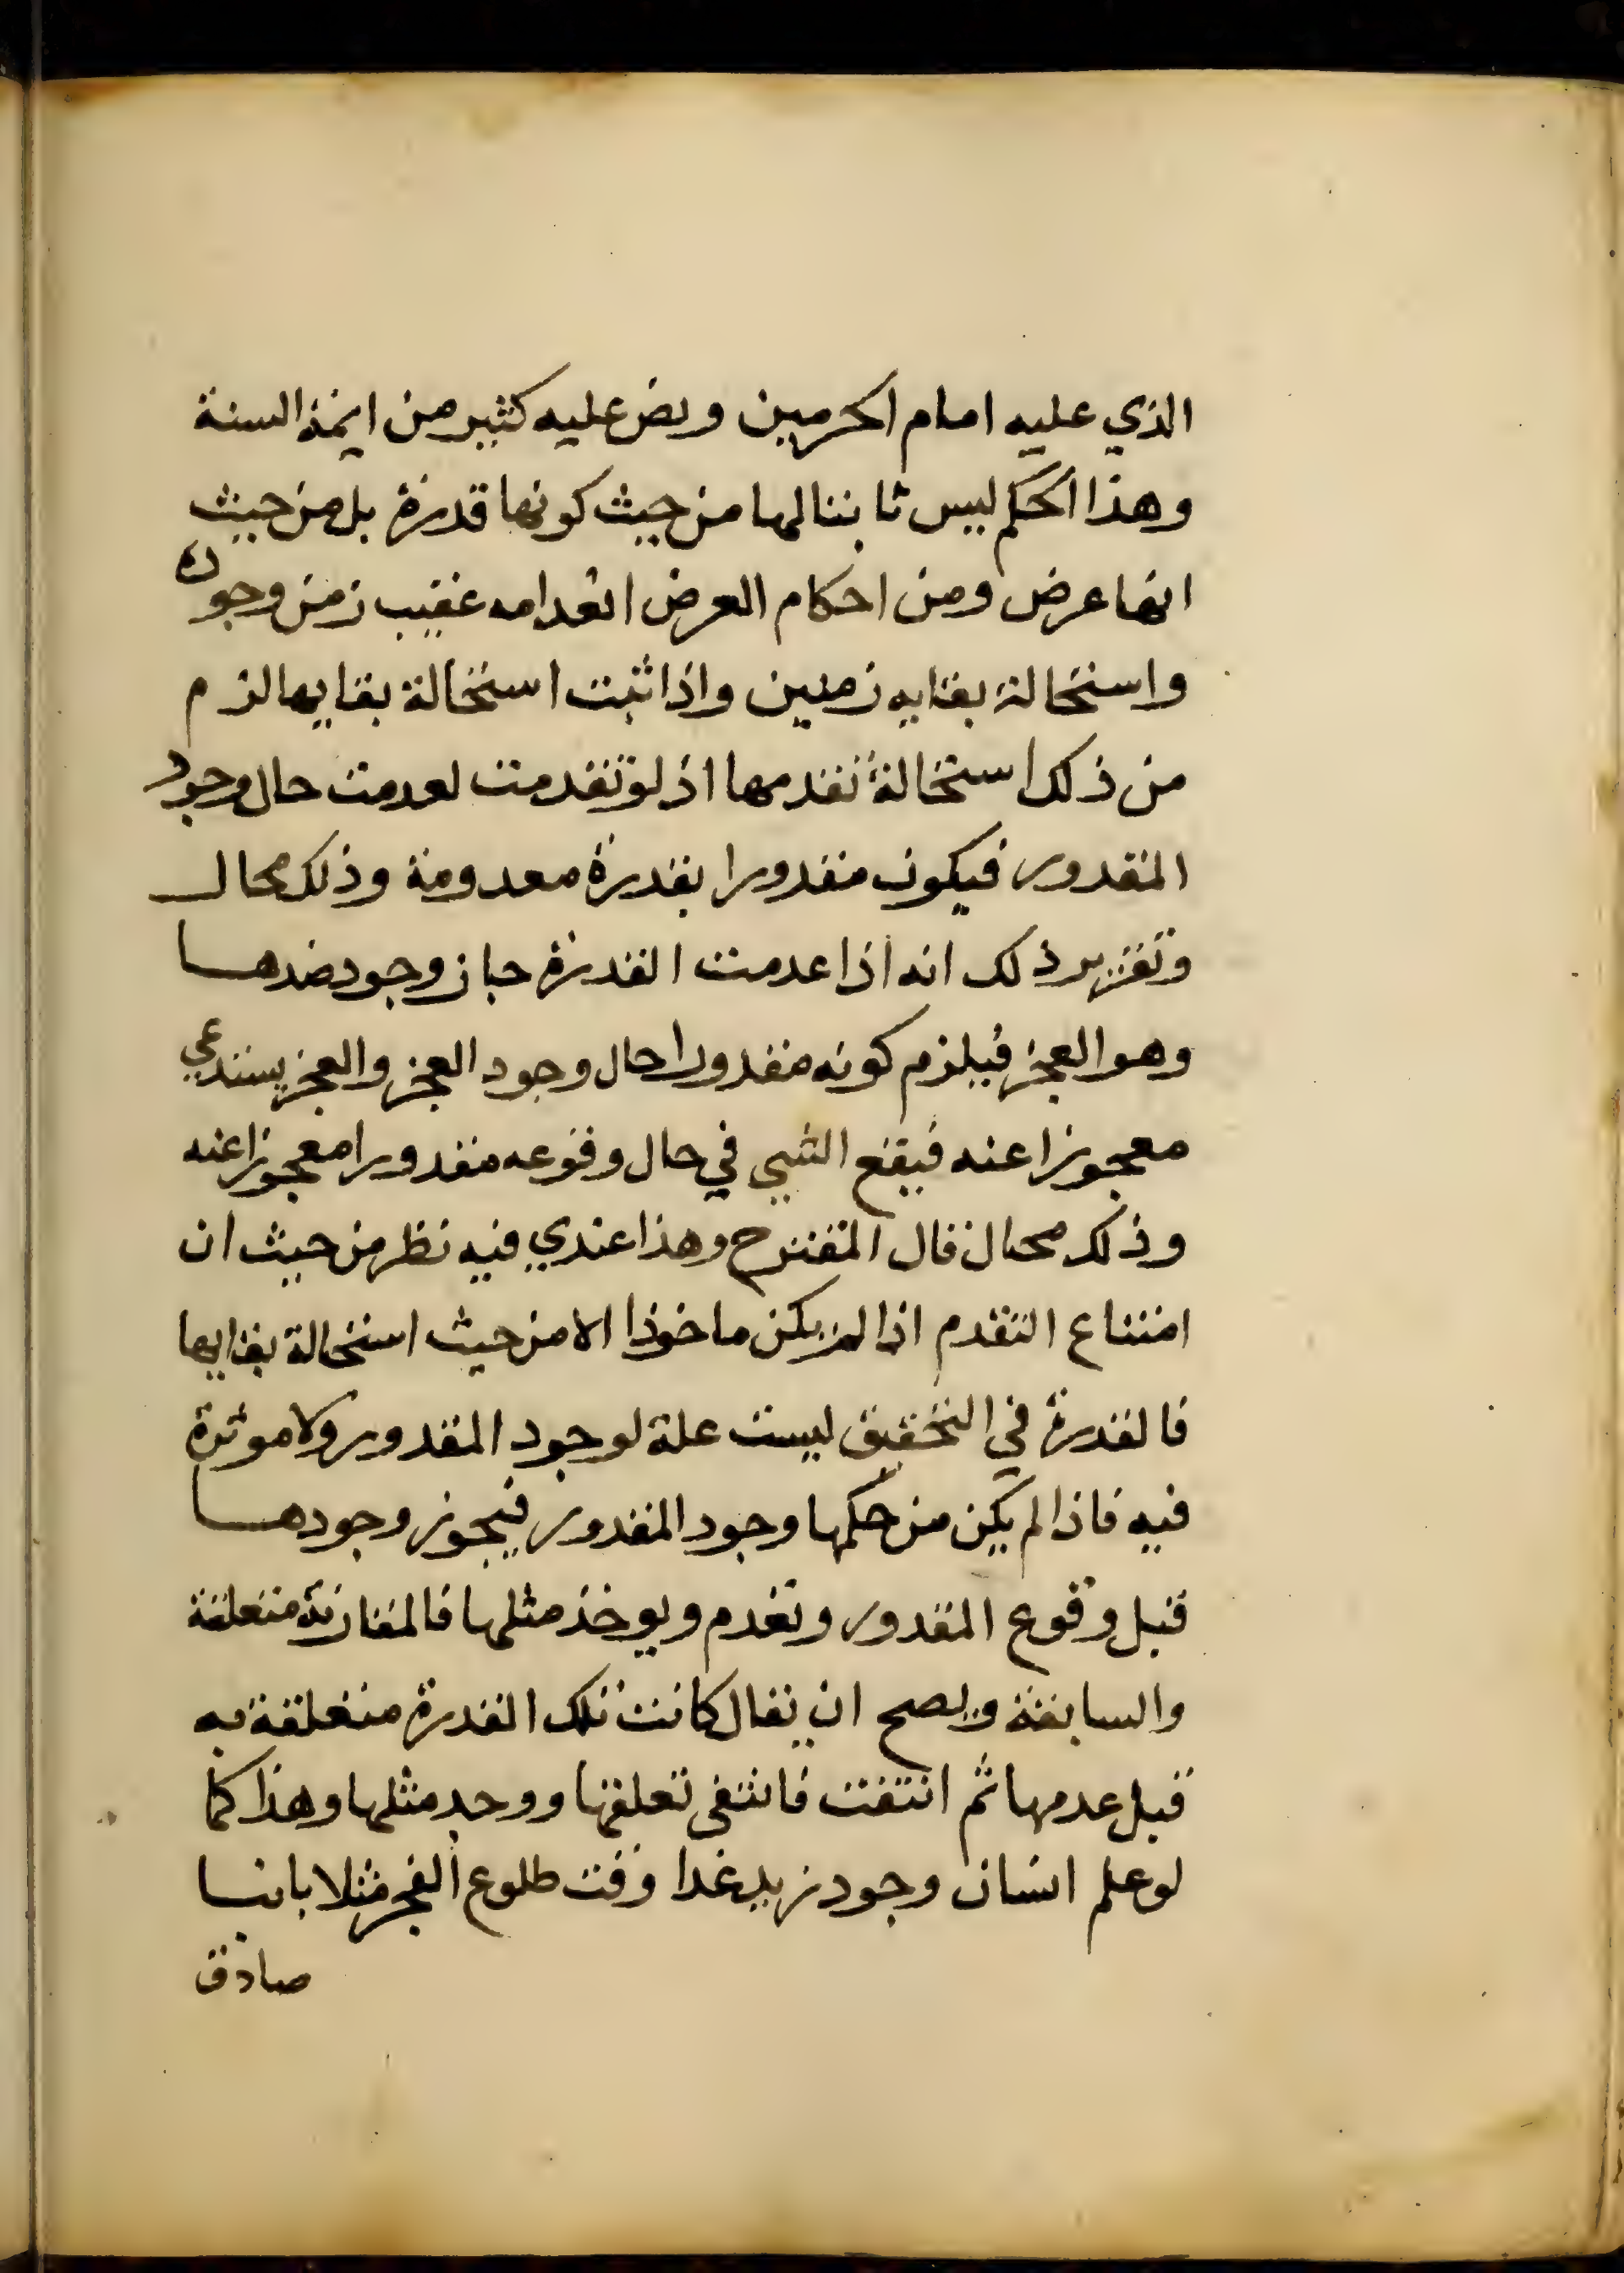 الذي عليه امام الحرمين ونص عليه كثير من ايمة السنة
وهذا الحكم ليس ثابتا لها من حيث كونها قدرة بل من حيث
انها عرض ومن احكام العرض انعدامه عقيب زمن وجوده
واستحالة بقايه زمنين واذا ثبت استحالة بقايها لزم
من ذلك استحالة تقدمها اذ لو تقدمت لعدمت حال وجود
المقدور فيكون مقدورا بقدرة معدومة وذلك محال
وتقرير ذلك انه اذا عدمت القدرة جاز وجود ضدها
وهو العجز فيلزم كونه مقدورا حال وجود العجز والعجز يستدعي
معجوزا عنه فيقع الشي في حال وقوعه مقدورا معجوزا عنه
وذلك محال قال المقترح وهذا عندي فيه نظر من حيث ان
امتناع التقدم اذا لم يكن ماخوذا الا من حيث استحالة بقايها
فالقدرة في التحقيق ليست علة لوجود المقدور ولا موثرة
فيه فاذا لم يكن من حكمها وجود المقدور فيجوز وجودها
قبل وقوع المقدور وتعدم ويوخذ مثلها فالمقارنة متعلقة
والسابقة ويصح ان يقال كانت تلك القدرة متعلقة به
قبل عدمها ثم انتفت فانتفى تعلقها ووجد مثلها وهذا كما
لو علم انسان وجود زيد غدا وقت طلوع الفجر مثلا بانبا
صادق